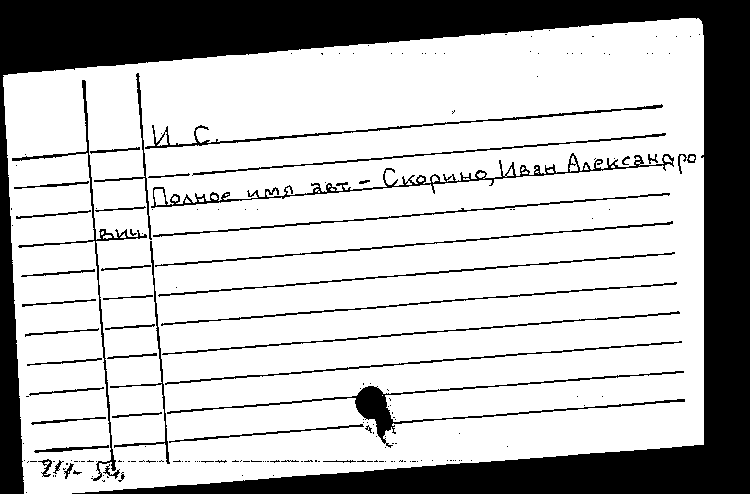 И. С.
Полное имя авт. – Скорино, Иван Александро-
вич.